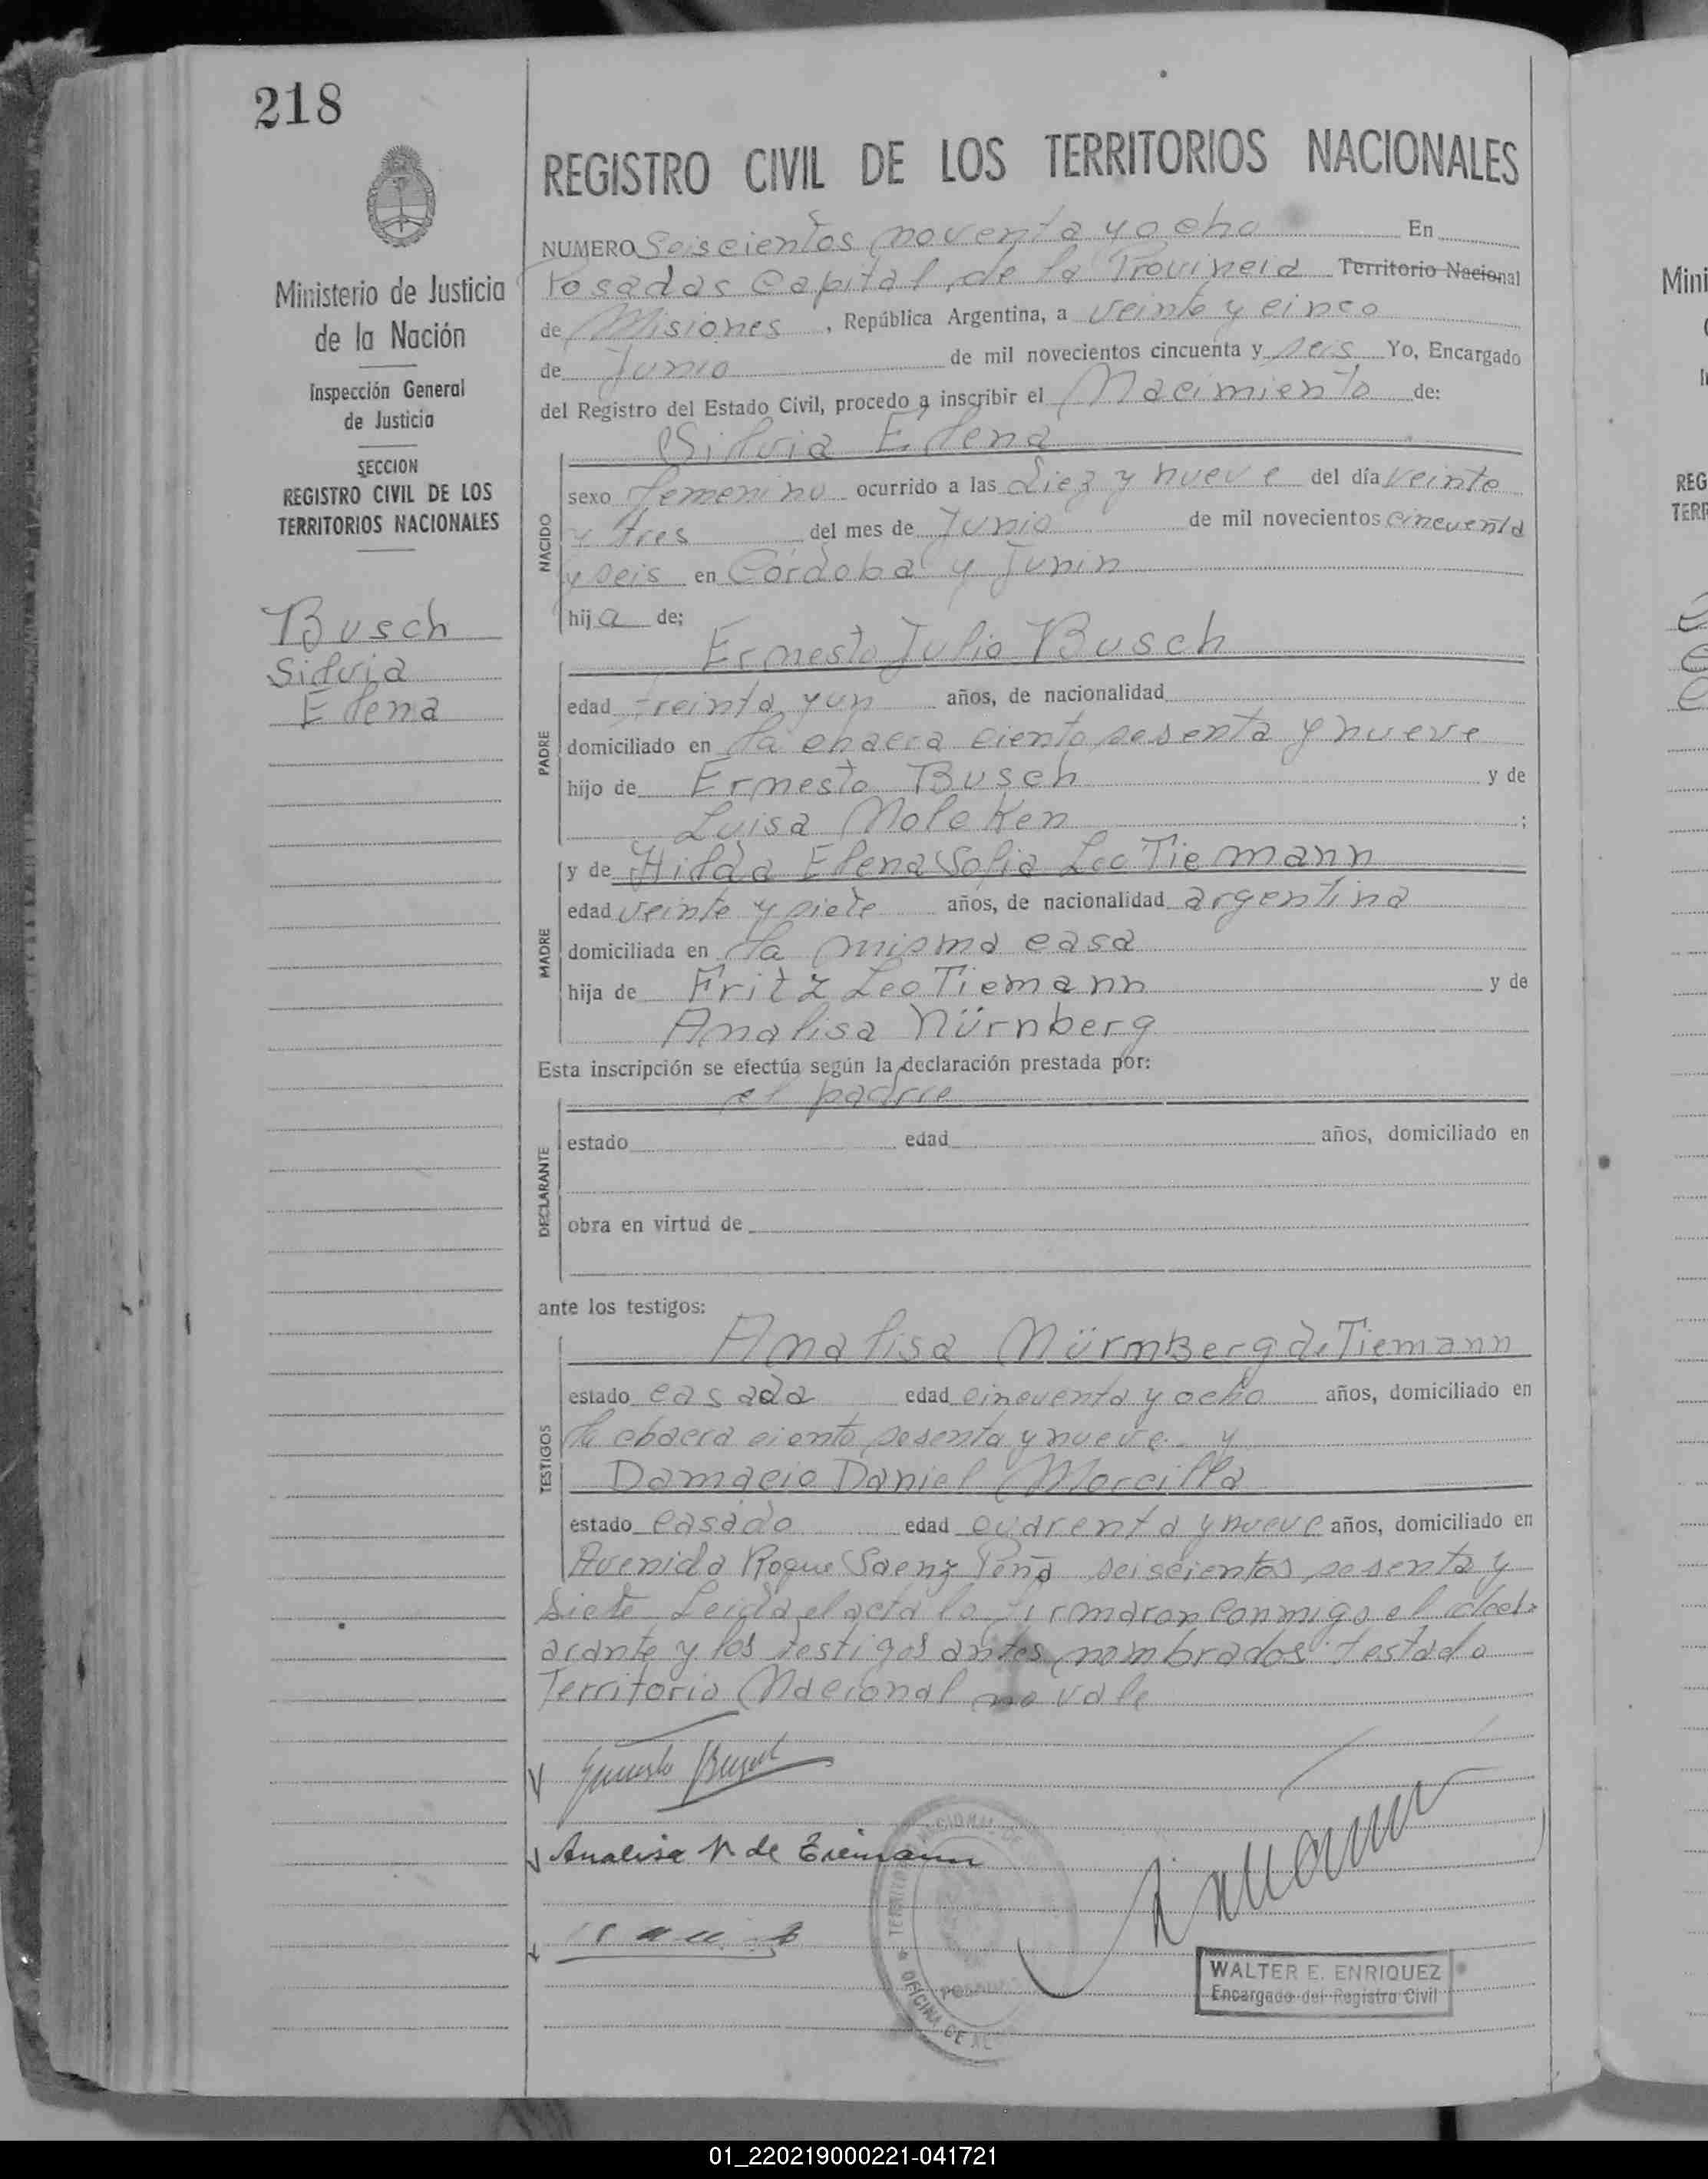 218
REGISTRO CIVIL DE LOS TERRITORIOS NACIONALES
Ministerio de Justicia
de la Nación
Inspección General
de Justicia
SECCION
REGISTRO CIVIL DE LOS
TERRITORIOS NACIONALES
Busch
Silvia
Elena
NUMERO Seiscientos noventa y ocho En
Posadas Capital, de la Provincia Territorio Nacional
de Misiones, República Argentina, a veinte y cinco
de Junio de mil novecientos cincuenta y seis Yo, Encargado
del Registro del Estado Civil, procedo a inscribir el Nacimiento de:
Silvia Elena
NACIDO
sexo femenino ocurrido a las diez y nueve del día veinte
y tres del mes de Junio de mil novecientos cincuenta
y seis en Córdoba y Junin
hija de;
Ernesto Julio Busch
PADRE
edad treinta y un años, de nacionalidad
domiciliado en la chacra ciento sesenta y nueve
hijo de Ernesto Busch y de
Luisa Moleken;
MADRE
y de Hilda Elena Sofia Leo Tiemann
edad veinte y siete años, de nacionalidad argentina
domiciliada en la misma casa
hija de Fritz Leo Tiemann y de
Analisa Nürnberg
Esta inscripción se efectúa según la declaración prestada por:
el padre
DECLARANTE
estado edad años, domiciliado en
obra en virtud de
ante los testigos:
Analisa NürmBerg de Tiemann
TESTIGOS
estado casada edad cincuenta y ocho años, domiciliado en
la chacra ciento sesenta y nueve y
Damacio Daniel Morcilla
estado casado edad cuarenta y nueve años, domiciliado en
Avenida Roque Saenz Peña seiscientos sesenta y
siete Leida el acta la firmaron conmigo el decl-
arante y los testigos antes nombrados: testado
Territorio Nacional no vale
Ernesto Busch
Analisa N. de Tiemann
OFICINA DE
POSADAS
WALTER E. ENRIQUEZ
Encargado del Registro Civil
Mini
REG
TERR
01_220219000221-041721